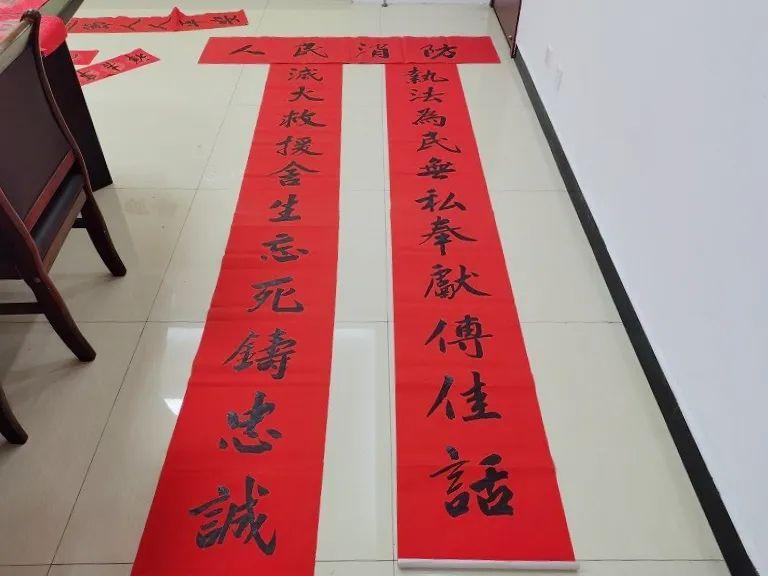 人民消防
執法為民無私奉獻傳佳話
滅火救援舍生忘死鑄忠誠